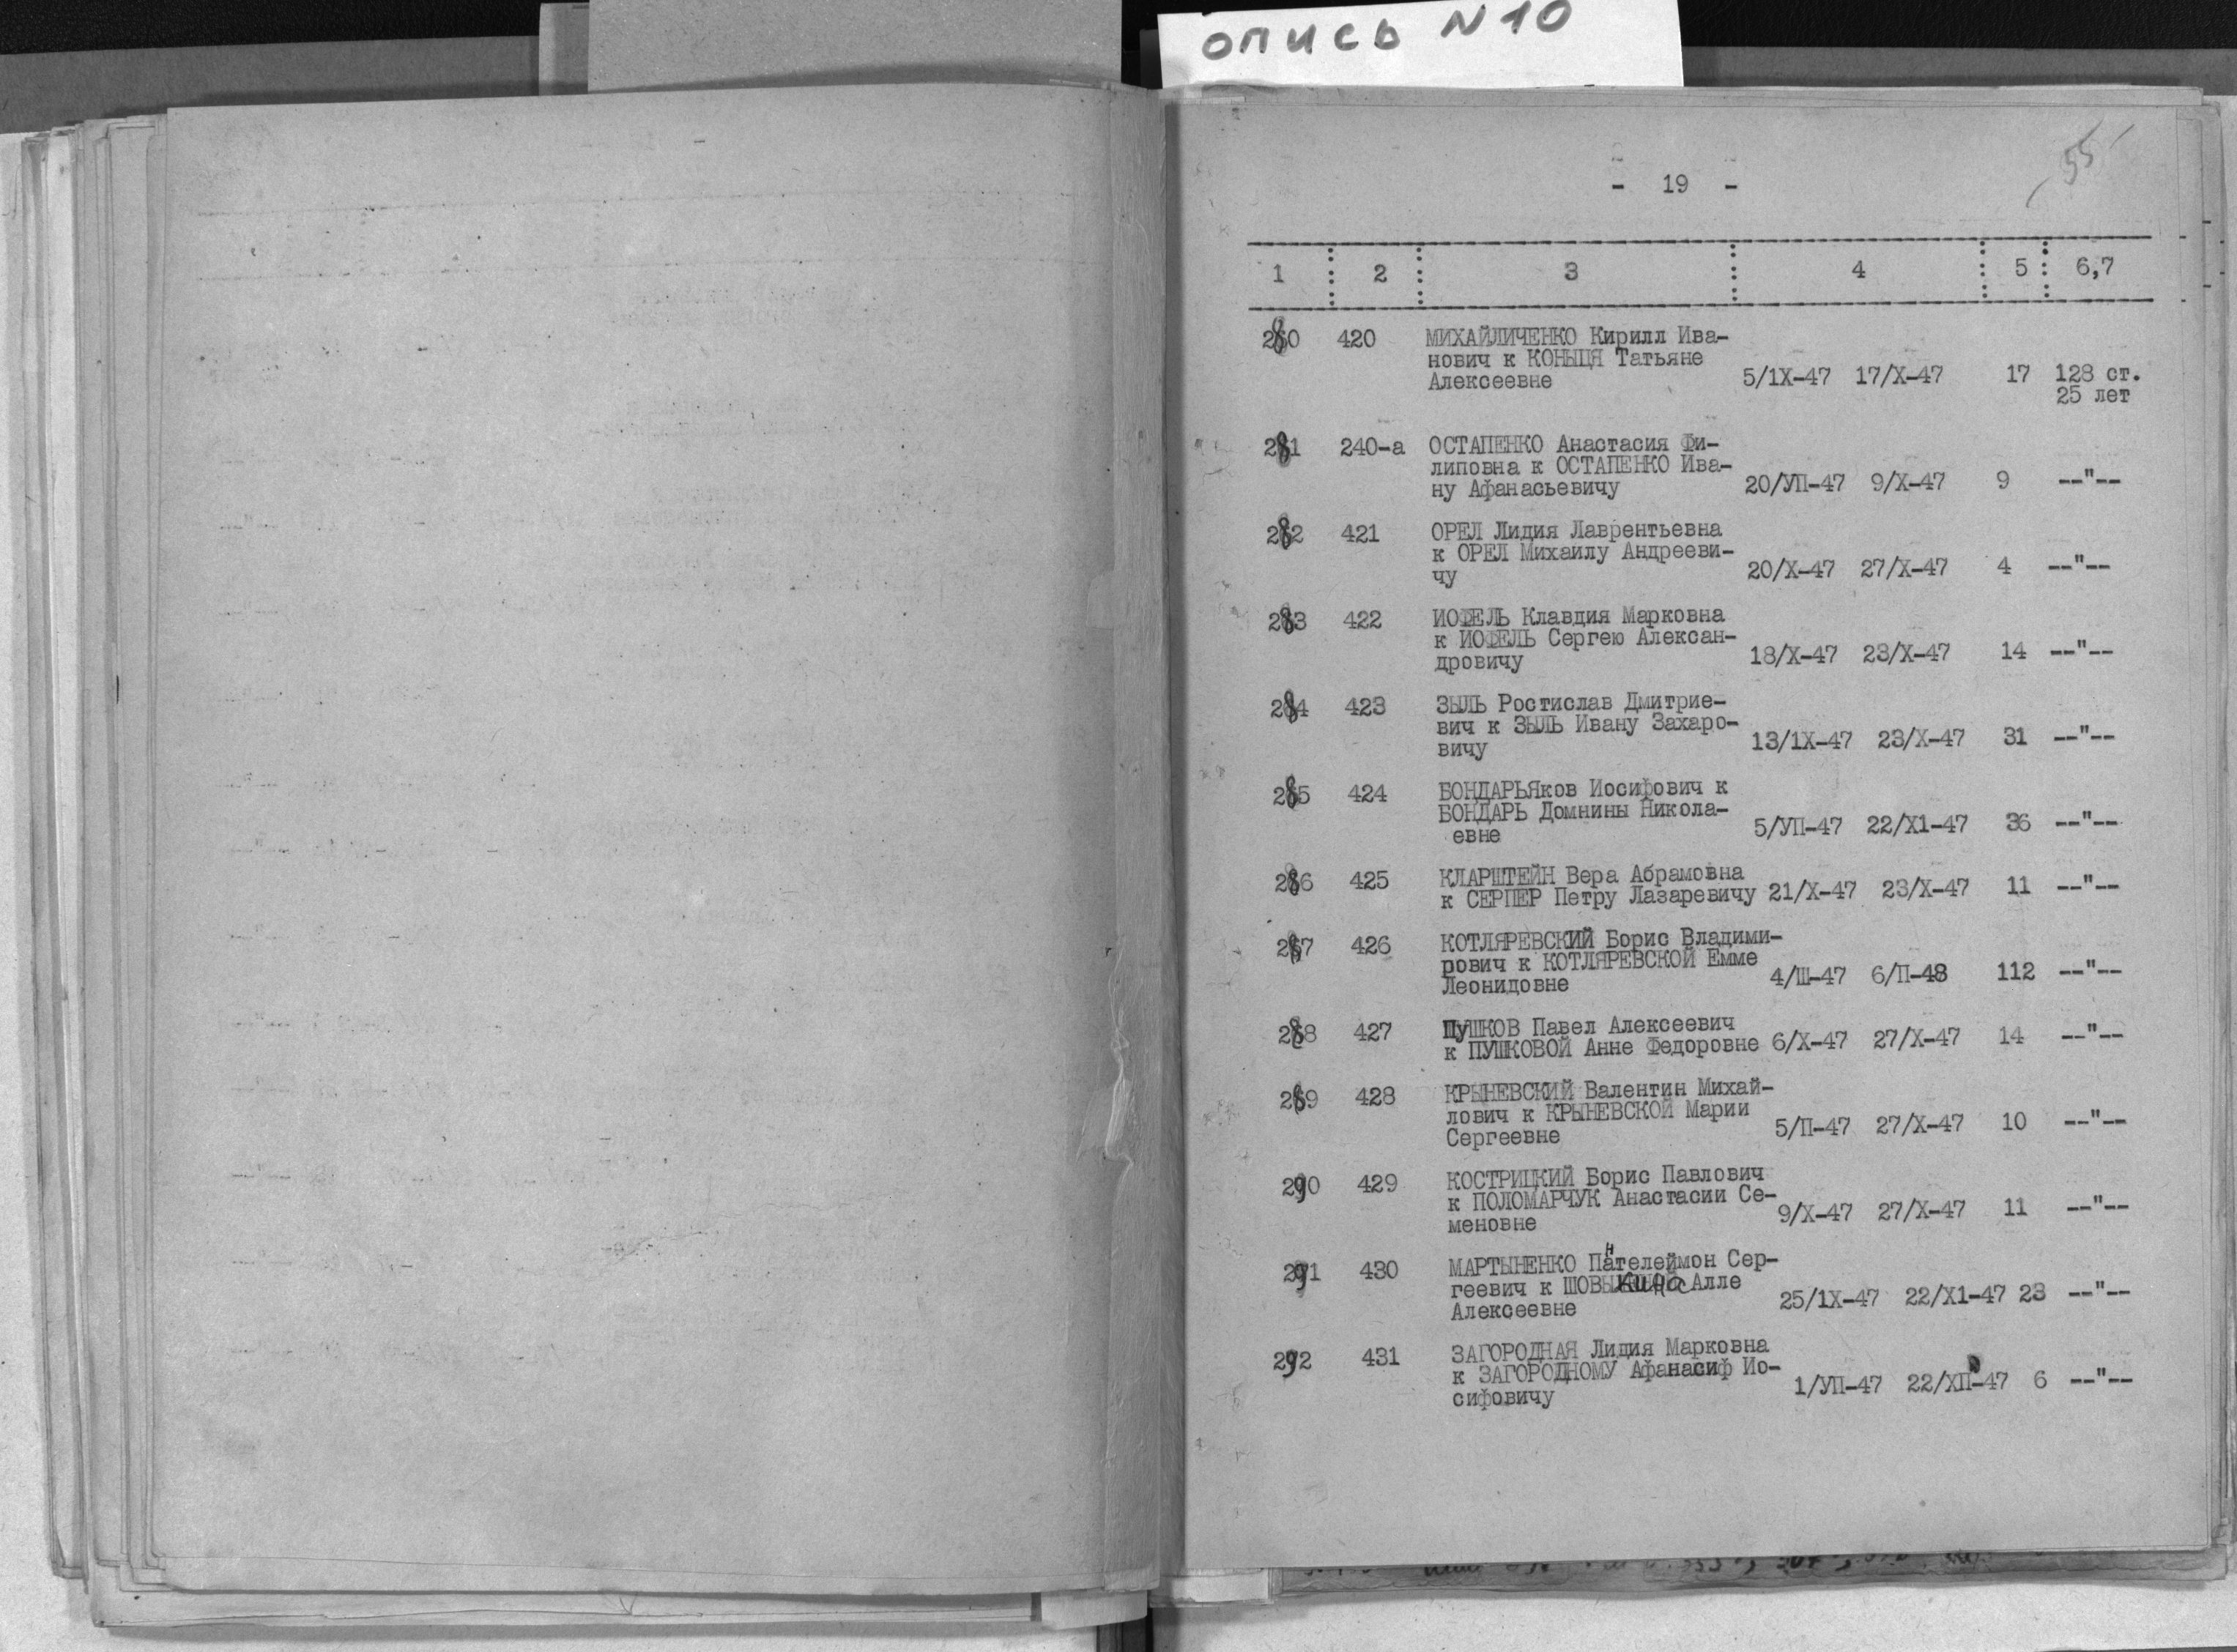 опись N10
55
- 19 -
1 2 3 4 5 6,7
280 420 МИХАЙЛИЧЕНКО Кирилл Ива-
нович к КОНЫЦЯ Татьяне
Алексеевне 5/1Х-47 17/Х-47 17 128 ст.
25 лет
281 240-а ОСТАПЕНКО Анастасия Фи-
липовна к ОСТАПЕНКО Ива-
ну Афанасьевичу 20/УП-47 9/Х-47 9 --"--
282 421 ОРЕЛ Лидия Лаврентьевна
к ОРЕЛ Михаилу Андрееви-
чу 20/Х-47 27/Х-47 4 --"--
283 422 ИОФЕЛЬ Клавдия Марковна
к ИОФЕЛЬ Сергею Алексан-
дровичу 18/Х-47 23/Х-47 14 --"--
284 423 ЗЫЛЬ Ростислав Дмитрие-
вич к ЗЫЛЬ Ивану Захаро-
вичу 13/1Х-47 23/Х-47 31 --"--
285 424 БОНДАРЬЯков Иосифович к
БОНДАРЬ Домнины Никола-
евне 5/УП-47 22/Х1-47 36 --"--
286 425 КЛАРШТЕЙН Вера Абрамовна
к СЕРПЕР Петру Лазаревичу 21/Х-47 23/Х-47 11 --"--
287 426 КОТЛЯРЕВСКИЙ Борис Владими-
рович к КОТЛЯРЕВСКОЙ Емме
Леонидовне 4/Ш-47 6/П-48 112 --"--
288 427 ПуШКОВ Павел Алексеевич
к ПУШКОВОЙ Анне Федоровне 6/Х-47 27/Х-47 14 --"--
289 428 КРЫНЕВСКИЙ Валентин Михай-
лович к КРЫНЕВСКОЙ Марии
Сергеевне 5/П-47 27/Х-47 10 --"--
290 429 КОСТРИЦКИЙ Борис Павлович
к ПОЛОМАРЧУК Анастасии Се-
меновне 9/Х-47 27/Х-47 11 --"--
291 430 МАРТЫНЕНКО Пантелеймон Сер-
геевич к Алле
Алексеевне 25/1Х-47 22/Х1-47 23 --"--
292 431 ЗАГОРОДНАЯ Лидия Марковна
к ЗАГОРОДНОМУ Афанасиф Ио-
сифовичу 1/УП-47 22/ХП-47 6 --"--